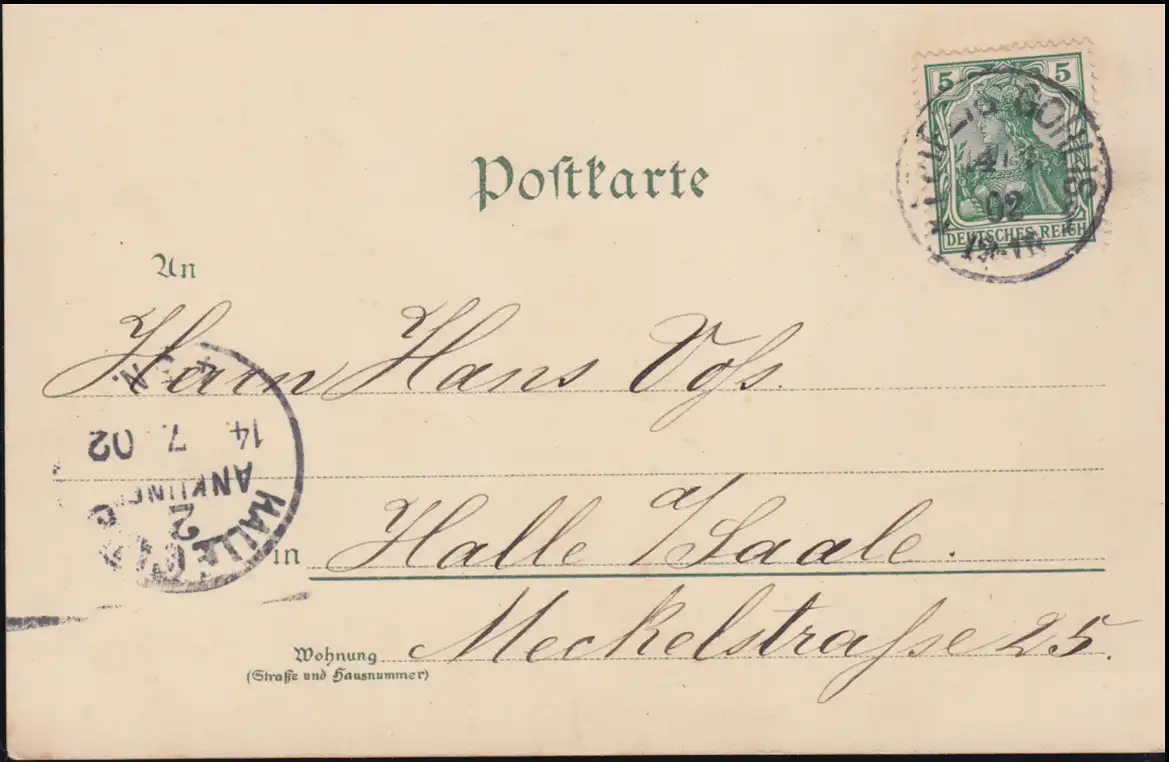 5 5
DEUTSCHES REICH
GOHLIS
02
Postkarte
An
Herrn Hans Voss.
14. 7. 02
ANKUNFT
HALLE
2
in Halle a/Saale.
Wohnung Meckelstraße 25.
(Straße und Hausnummer)